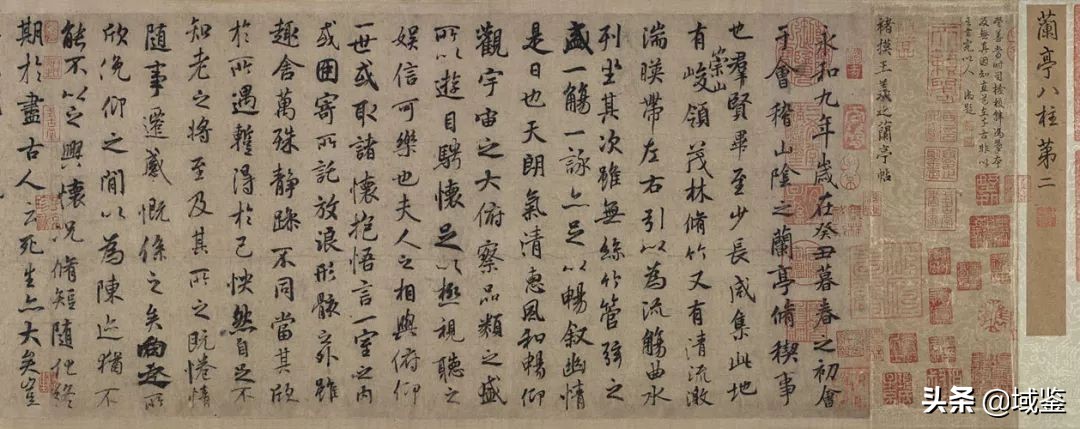 蘭亭八柱第二
褚摸王羲之蘭亭帖
永和九年歲在癸丑暮春之初會
于會稽山陰之蘭亭脩稧事
也羣賢畢至少長咸集此地
有崇山峻領茂林脩竹又有清流激
湍暎帶左右引以為流觴曲水
列坐其次雖無絲竹管弦之
盛一觴一詠亦足以暢敘幽情
是日也天朗氣清惠風和暢仰
觀宇宙之大俯察品類之盛
所以遊目騁懷足以極視聽之
娛信可樂也夫人之相與俯仰
一世或取諸懷抱悟言一室之內
或因寄所託放浪形骸之外雖
趣舍萬殊靜躁不同當其欣
於所遇暫得於己怏然自足不
知老之將至及其所之既惓情
隨事遷感慨係之矣向之所
欣俛仰之間以為陳迹猶不
能不以之興懷況脩短隨化終
期於盡古人云死生亦大矣豈
头条 @域鉴